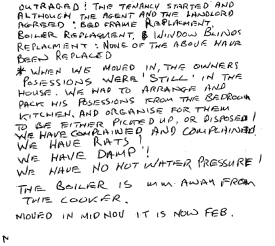 OUTRAGED! THE TENANCY STARTED AND
ALTHOUGH THE AGENT AND THE LANDLORD
AGREED: BED FRAME REPLACMENT,
BOILER REPLACEMENT, & WINDOW BLINDS
REPLACMENT: NONE OF THE ABOVE HAVE
BEEN REPLACED
* WHEN WE MOVED IN, THE OWNERS
POSESSIONS WERE 'STILL' IN THE
HOUSE. WE HAD TO ARRANGE AND
PACK HIS POSESSIONS FROM THE BEDROOM
KITCHEN, AND ORGANISE FOR THEM
TO BE EITHER PICKED UP, OR DISPOSED!
WE HAVE COMPLAINED AND COMPLAINED
WE HAVE RATS!
WE HAVE DAMP!
WE HAVE NO HOT WATER PRESSURE!
THE BOILER IS mm AWAY FROM
THE COOKER.
MOVED IN MID NOV IT IS NOW FEB.